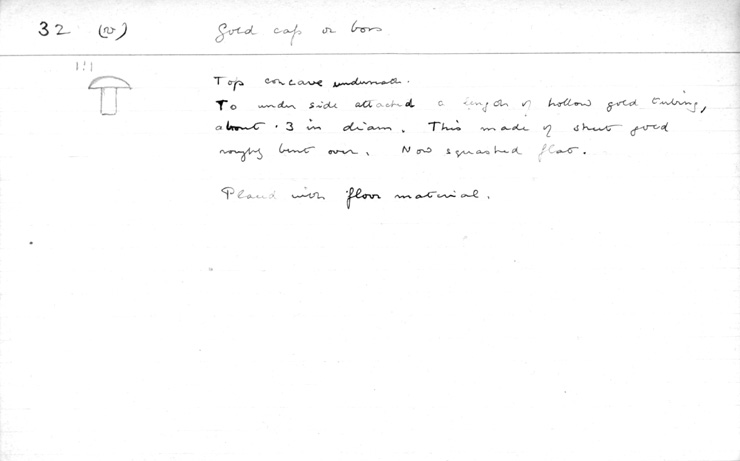 32 (v) Gold cap or boss
Top concave underneath.
To under side attached a length of hollow gold tubing,
about .3 in diam. This made of sheet gold
roughly bent over. Now squashed flat.
Placed with floor material.